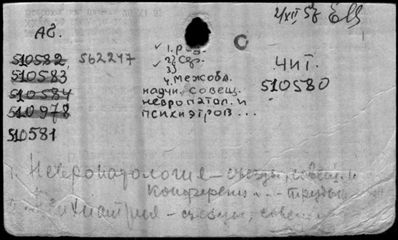 Аб.
510582, 562247
510583
510584
510978
510581
4 XII 58
1. рег.
2)
3)
4. межобл.
научн. совещ.
невропатол. и
психиатров...
С
ЧИТ.
510580
1. Невропатология - съезды, совещ. и
Конференц... - труды
2. Психиатрия - съезды, совещ